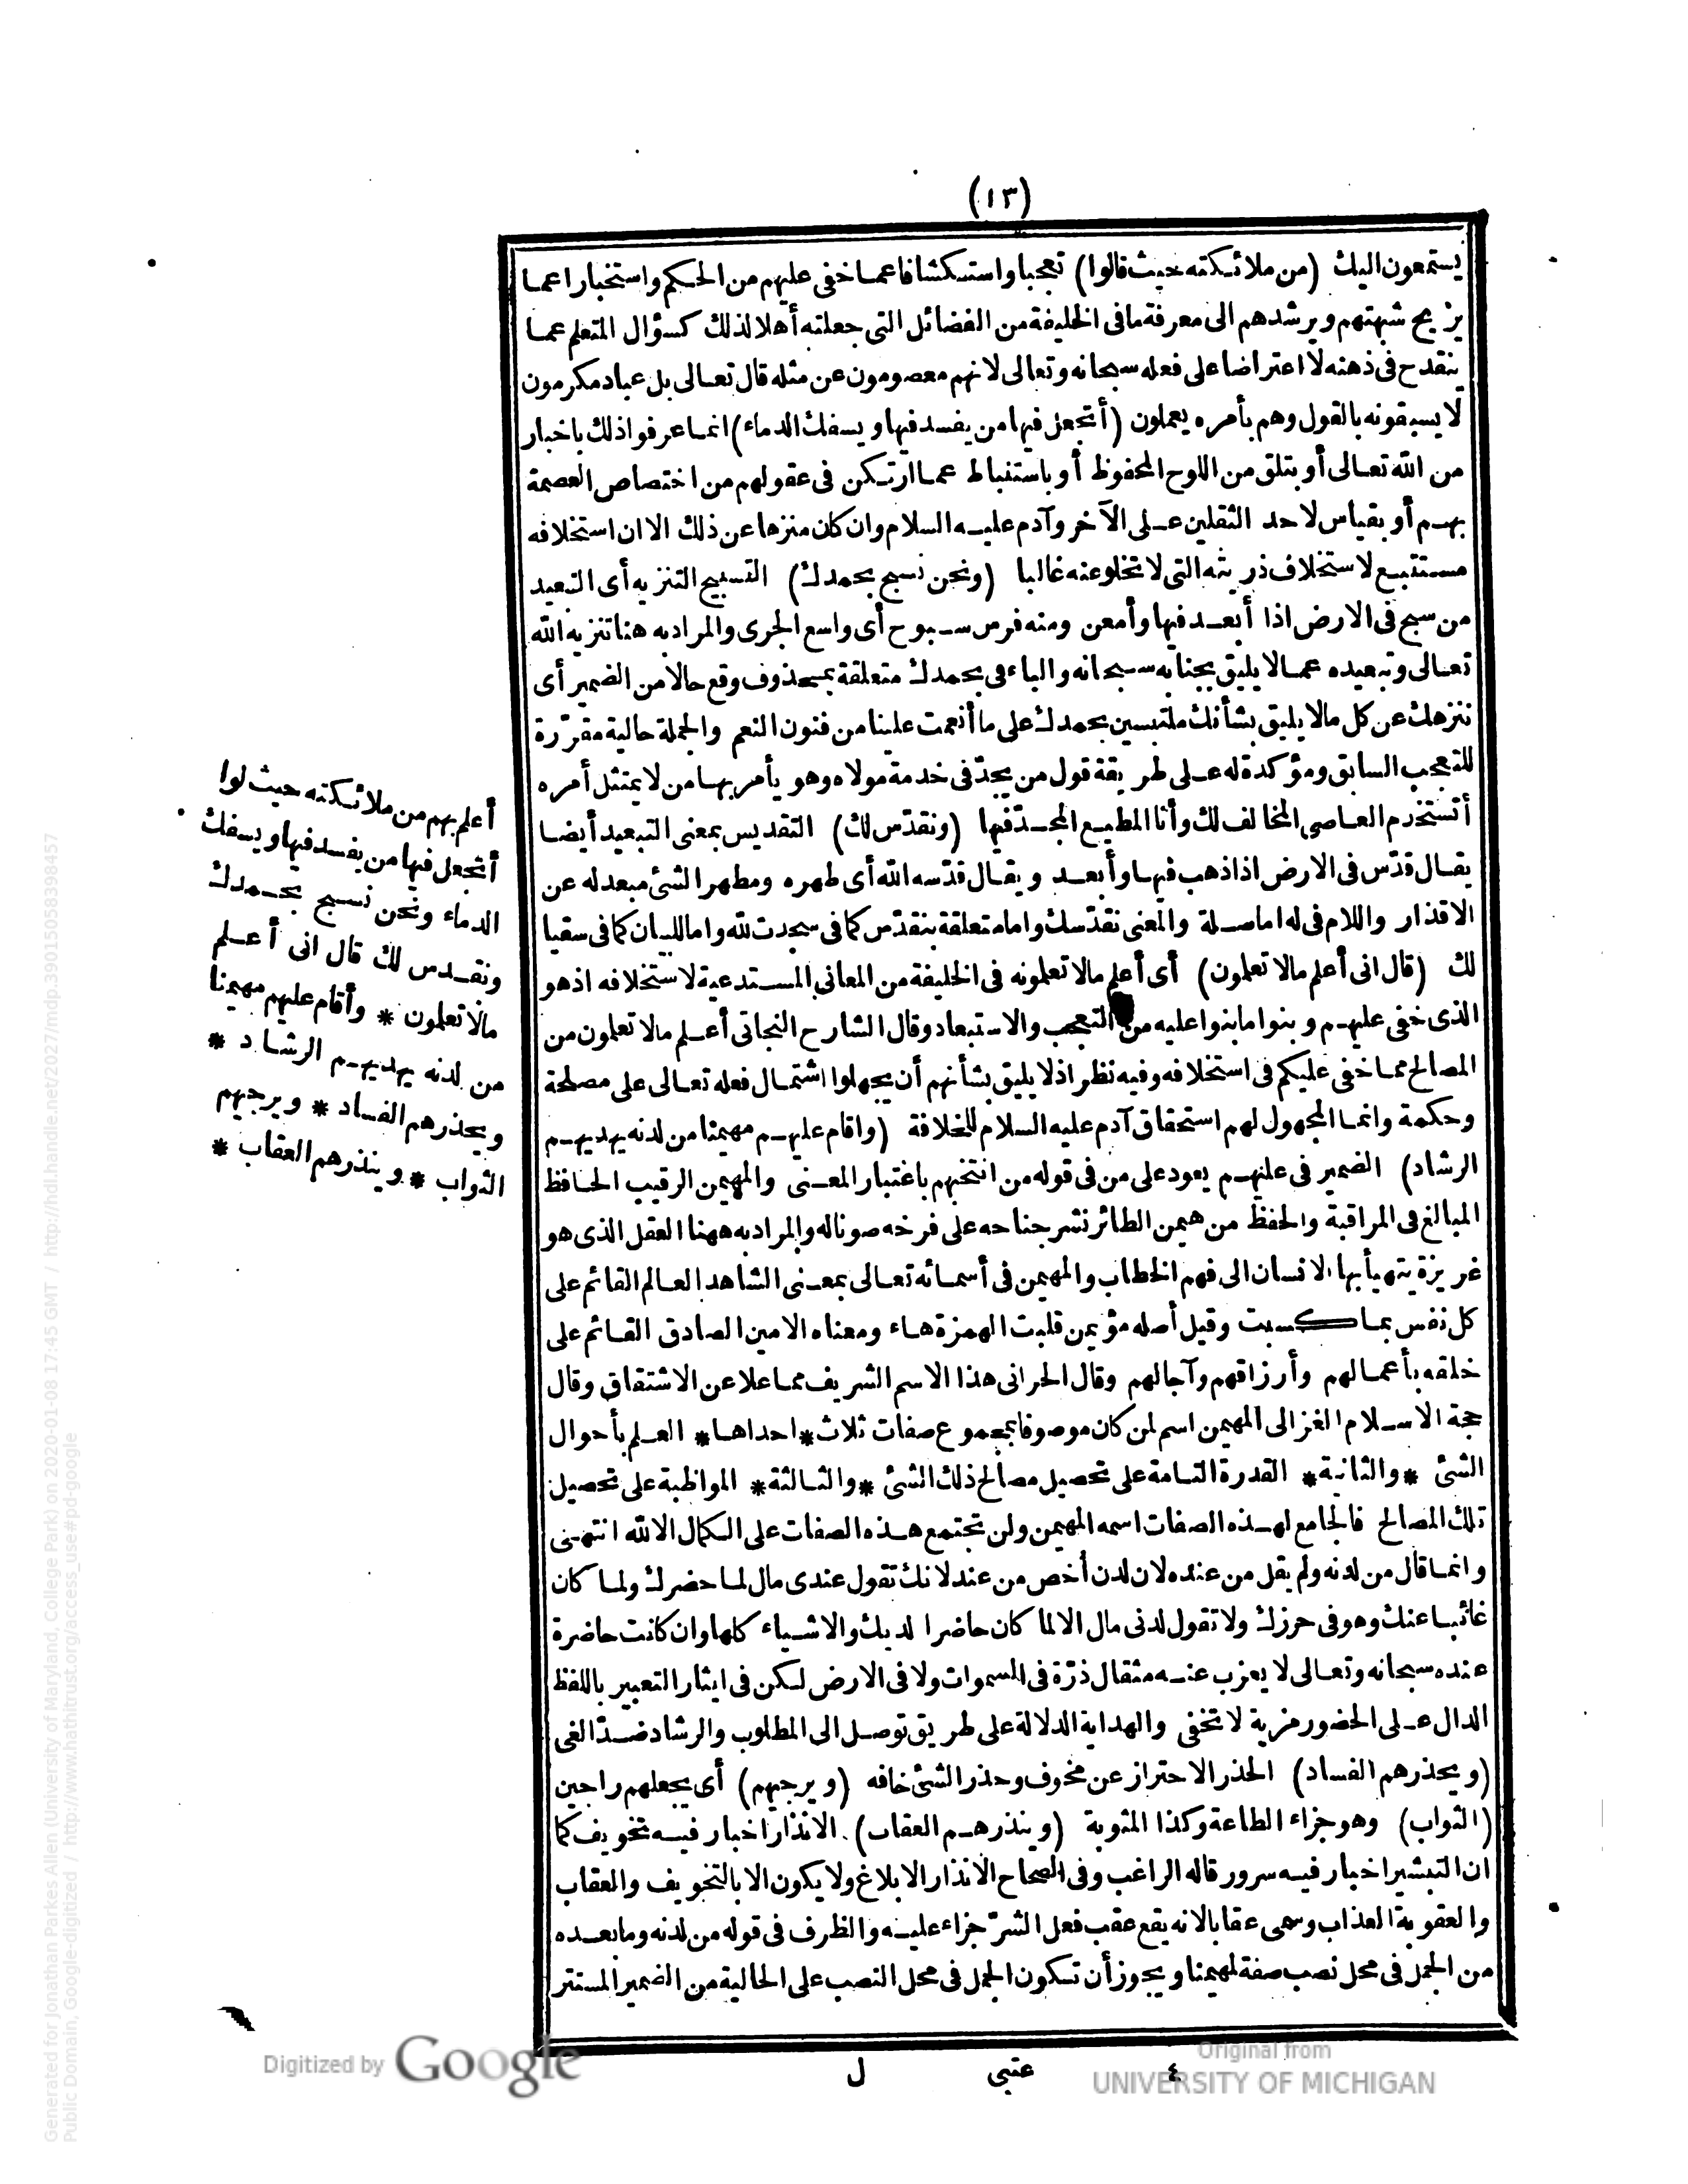 (١٣)
يستمعون اليك (من ملائكته حيث قالوا) تعجبا واستكشافا عما خفى عليهم من الحكم واستخبارا عما
يزيح شبهتهم ويرشدهم الى معرفة ما فى الخليفة من الفضائل التى جعلته أهلا لذلك كسؤال المتعلم عما
ينقدح فى ذهنه لا اعتراضا على فعله سبحانه وتعالى لانهم معصومون عن مثله قال تعالى بل عباد مكرمون
لا يسبقونه بالقول وهم بأمره يعملون (أتجعل فيها من يفسد فيها ويسفك الدماء) انما عرفوا ذلك باخبار
من الله تعالى أو بتلق من اللوح المحفوظ أو باستنباط عما ارتكن فى عقولهم من اختصاص العصمة
بهم أو بقياس لاحد الثقلين على الآخر وآدم عليه السلام وان كان منزها عن ذلك الا ان استخلافه
مستتبع لاستخلاف ذريته التى لا تخلو عنه غالبا (ونحن نسبح بحمدك) التسبيح التنزيه أى التبعيد
من سبح فى الارض اذا أبعد فيها وأمعن ومنه فرس سبوح أى واسع الجرى والمراد به هنا تنزيه الله
تعالى وتبعيده عما لا يليق بجنابه سبحانه والباء فى بحمدك متعلقة بمحذوف وقع حالا من الضمير أى
ننزهك عن كل ما لا يليق بشأنك ملتبسين بحمدك على ما أنعمت علينا من فنون النعم والجملة حالية مقررة
للتعجب السابق ومؤكدة له على طريقة قول من يجدّ فى خدمة مولاه وهو يأمر بها من لا يمتثل أمره
أتستخدم العاصى المخالف لك وأنا المطيع المجدّ فيها (ونقدّس لك) التقديس بمعنى التبعيد أيضا
يقال قدّس فى الارض اذا ذهب فيها وأبعد ويقال قدّسه الله أى طهره ومطهر الشئ مبعد له عن
الاقذار واللام فى له اما صلة والمعنى نقدّسك واما متعلقة بنقدّس كما فى سجدت لله واما للبيان كما فى سقيا
لك (قال انى أعلم مالا تعلمون) أى أعلم مالا تعلمونه فى الخليفة من المعانى المستدعية لاستخلافه اذ هو
الذى خفى عليهم وبنوا ما بنوا عليه من التعجب والاستبعاد وقال الشارح النجاتى أعلم مالا تعلمون من
المصالح مما خفى عليكم فى استخلافه وفيه نظر اذ لا يليق بشأنهم أن يجهلوا اشتمال فعله تعالى على مصلحة
وحكمة وانما المجهول لهم استحقاق آدم عليه السلام للخلافة (واقام عليهم مهيمنا من لدنه يهديهم
الرشاد) الضمير فى عليهم يعود على من فى قوله من انتخبهم باعتبار المعنى والمهيمن الرقيب الحافظ
المبالغ فى المراقبة والحفظ من هيمن الطائر نشر جناحه على فرخه صونا له والمراد به ههنا العقل الذى هو
غريزة يتهيأ بها الانسان الى فهم الخطاب والمهيمن فى أسمائه تعالى بمعنى الشاهد العالم القائم على
كل نفس بما كسبت وقيل أصله مؤيمن قلبت الهمزة هاء ومعناه الامين الصادق القائم على
خلقه بأعمالهم وأرزاقهم وآجالهم وقال الحرانى هذا الاسم الشريف مما علا عن الاشتقاق وقال
حجة الاسلام الغزالى المهيمن اسم لمن كان موصوفا بمجموع صفات ثلاث * احداها * العلم بأحوال
الشئ * والثانية * القدرة التامة على تحصيل مصالح ذلك الشئ * والثالثة * المواظبة على تحصيل
تلك المصالح فالجامع لهذه الصفات اسمه المهيمن ولن تجتمع هذه الصفات على الكمال الا لله انتهى
وانما قال من لدنه ولم يقل من عنده لان لدن أخص من عند لانك تقول عندى مال لما حضرك ولما كان
غائبا عنك وهو فى حرزك ولا تقول لدنى مال الا لما كان حاضرا لديك والاشياء كلها وان كانت حاضرة
عنده سبحانه وتعالى لا يعزب عنه مثقال ذرّة فى السموات ولا فى الارض لكن فى ايثار التعبير باللفظ
الدال على الحضور مزية لا تخفى والهداية الدلالة على طريق توصل الى المطلوب والرشاد ضدّ الغى
(ويحذرهم الفساد) الحذر الاحتراز عن مخوف وحذر الشئ خافه (ويرجيهم) أى يجعلهم راجين
(الثواب) وهو جزاء الطاعة وكذا المثوبة (وينذرهم العقاب) الانذار اخبار فيه تخويف كما
ان التبشير اخبار فيه سرور قاله الراغب وفى الصحاح الانذار الابلاغ ولا يكون الا بالتخويف والعقاب
والعقوبة العذاب وسمى عقابا لانه يقع عقب فعل الشرّ جزاء عليه والظرف فى قوله من لدنه وما بعده
من الجمل فى محل نصب صفة لمهيمنا ويجوز أن تكون الجمل فى محل النصب على الحالية من الضمير المستتر
أعلم بهم من ملائكته حيث لوا
أتجعل فيها من يفسد فيها ويسفك
الدماء ونحن نسبح بحمدك
ونقدس لك قال انى أعلم
مالا تعلمون * وأقام عليهم مهيمنا
من لدنه يهديهم الرشاد *
ويحذرهم الفساد * ويرجيهم
الثواب * وينذرهم العقاب *
٤ عتبى ل
Digitized by Google
Original from
UNIVERSITY OF MICHIGAN
Generated for Jonathan Parkes Allen (University of Maryland, College Park) on 2020-01-08 17:45 GMT / http://hdl.handle.net/2027/mdp.39015058398457
Public Domain, Google-digitized / http://www.hathitrust.org/access_use#pd-google